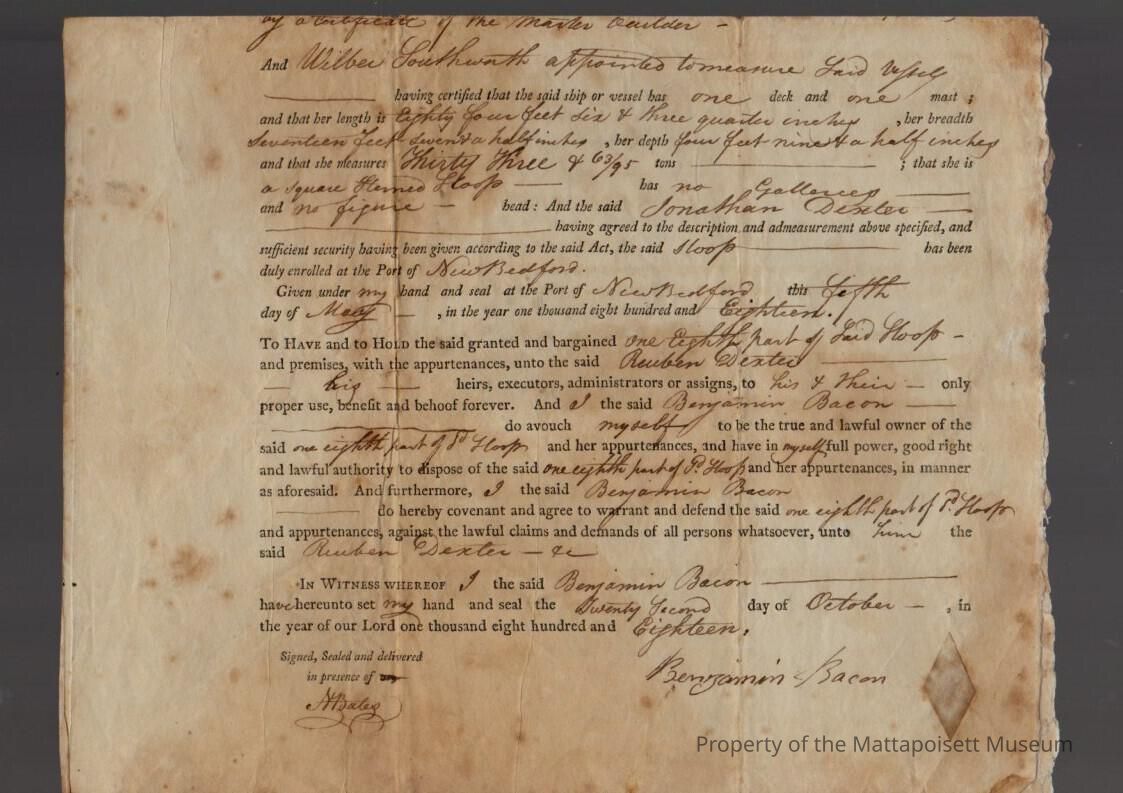 by a Certificate of the Master Builder —
And Wilber Southworth appointed to measure Said Vessel
having certified that the said ship or vessel has one deck and one mast ;
and that her length is Eighty four feet six & three quarter inches , her breadth
Seventeen feet seven & a half inches , her depth four feet nine & a half inches
and that she measures Thirty Three & 63/95 tons ; that she is
a square Sterned Sloop — has no Galleries
and no figure — head : And the said Jonathan Dexter —
having agreed to the description and admeasurement above specified, and
sufficient security having been given according to the said Act, the said Sloop has been
duly enrolled at the Port of New Bedford.
Given under my hand and seal at the Port of New Bedford this fifth
day of May — , in the year one thousand eight hundred and Eighteen.
TO HAVE and to HOLD the said granted and bargained one Eighth part of Said Sloop —
and premises, with the appurtenances, unto the said Reuben Dexter —
— his — heirs, executors, administrators or assigns, to his & their — only
proper use, benefit and behoof forever. And I the said Benjamin Bacon —
do avouch myself to be the true and lawful owner of the
said one eighth part of Sd. Sloop and her appurtenances, and have in myself full power, good right
and lawful authority to dispose of the said one eighth part of Sd. Sloop and her appurtenances, in manner
as aforesaid. And furthermore, I the said Benjamin Bacon
do hereby covenant and agree to warrant and defend the said one eighth part of Sd. Sloop
and appurtenances, against the lawful claims and demands of all persons whatsoever, unto him the
said Reuben Dexter — &c —
IN WITNESS WHEREOF I the said Benjamin Bacon —
have hereunto set my hand and seal the Twenty Second day of October — , in
the year of our Lord one thousand eight hundred and Eighteen.
Signed, Sealed and delivered
in presence of
Benjamin Bacon
N Bates
Property of the Mattapoisett Museum